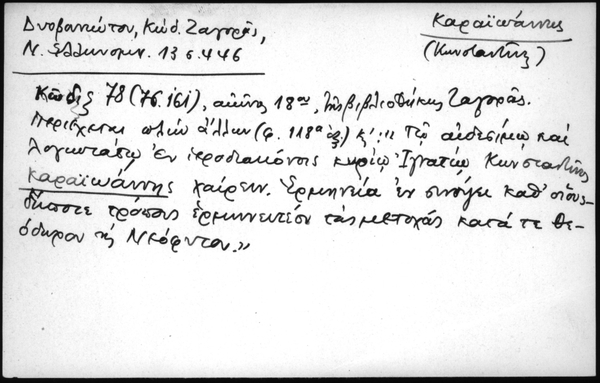 Δυοβουνιώτου, Κώδ. Ζαγορᾶς,
Ν. Ἑλληνομν. 13 σ. 446
Καραϊωάννης
(Κωνσταντῖνος)
Κῶδιξ 78 (76. ιϛι), αἰῶνος 18ου, τῆς βιβλιοθήκης Ζαγορᾶς.
Περιέχεται πλὴν ἄλλων (φ. 118α ἑξ.) κ': "Τῷ αἰδεσίμῳ καὶ
λογιωτάτῳ ἐν ἱεροδιακόνοις κυρίῳ Ἰγνατίῳ Κωνσταντῖνος
Καραϊωάννης χαίρειν. Ἑρμηνεία ἐν συνόψει καθ' οἵους-
δήποτε τρόπους ἑρμηνευτέον τὰς μετοχὰς κατά τε Θε-
όδωρον τῆς